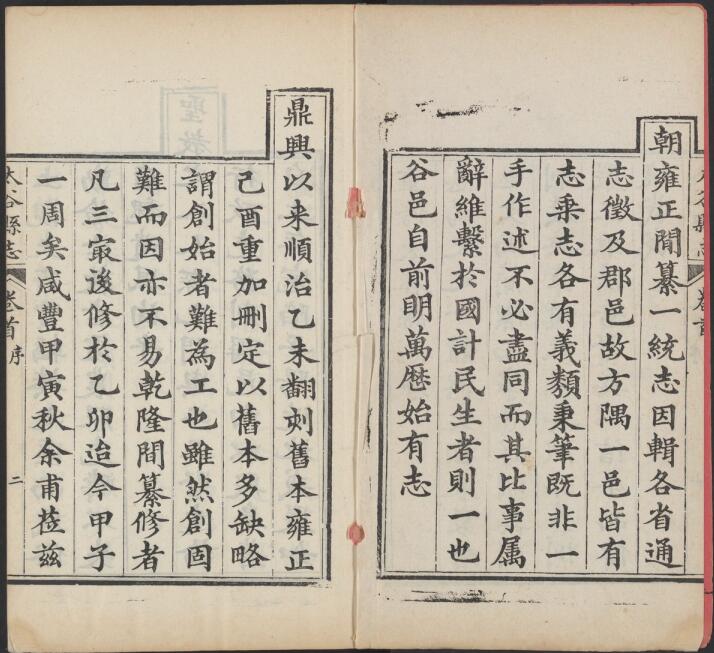 朝雍正閒纂一統志因輯各省通
志徵及郡邑故方隅一邑皆有
志乗志各有義類秉筆既非一
手作述不必盡同而其比事属
辭維繫於國計民生者則一也
谷邑自前明萬厯始有志
鼎興以来順治乙未翻刻舊本雍正
己酉重加刪定以舊本多缺略
謂創始者難為工也雖然創固
難而因亦不易乾隆間纂修者
凡三㝡後修於乙卯迨今甲子
一周矣咸豐甲寅秋余甫莅兹
太谷縣志
卷首
序
二